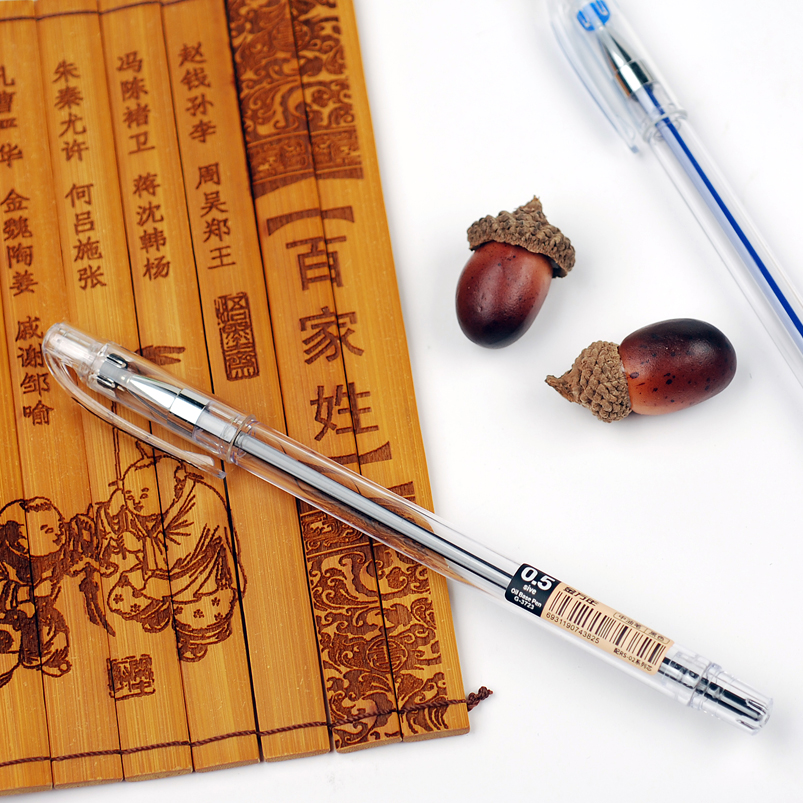 【百家姓】
赵钱孙李 周吴郑王
冯陈褚卫 蒋沈韩杨
朱秦尤许 何吕施张
孔曹 华 金魏陶姜
戚谢邹喻
0.5
aive
Oil Base Pen
G-3723
6931190743825